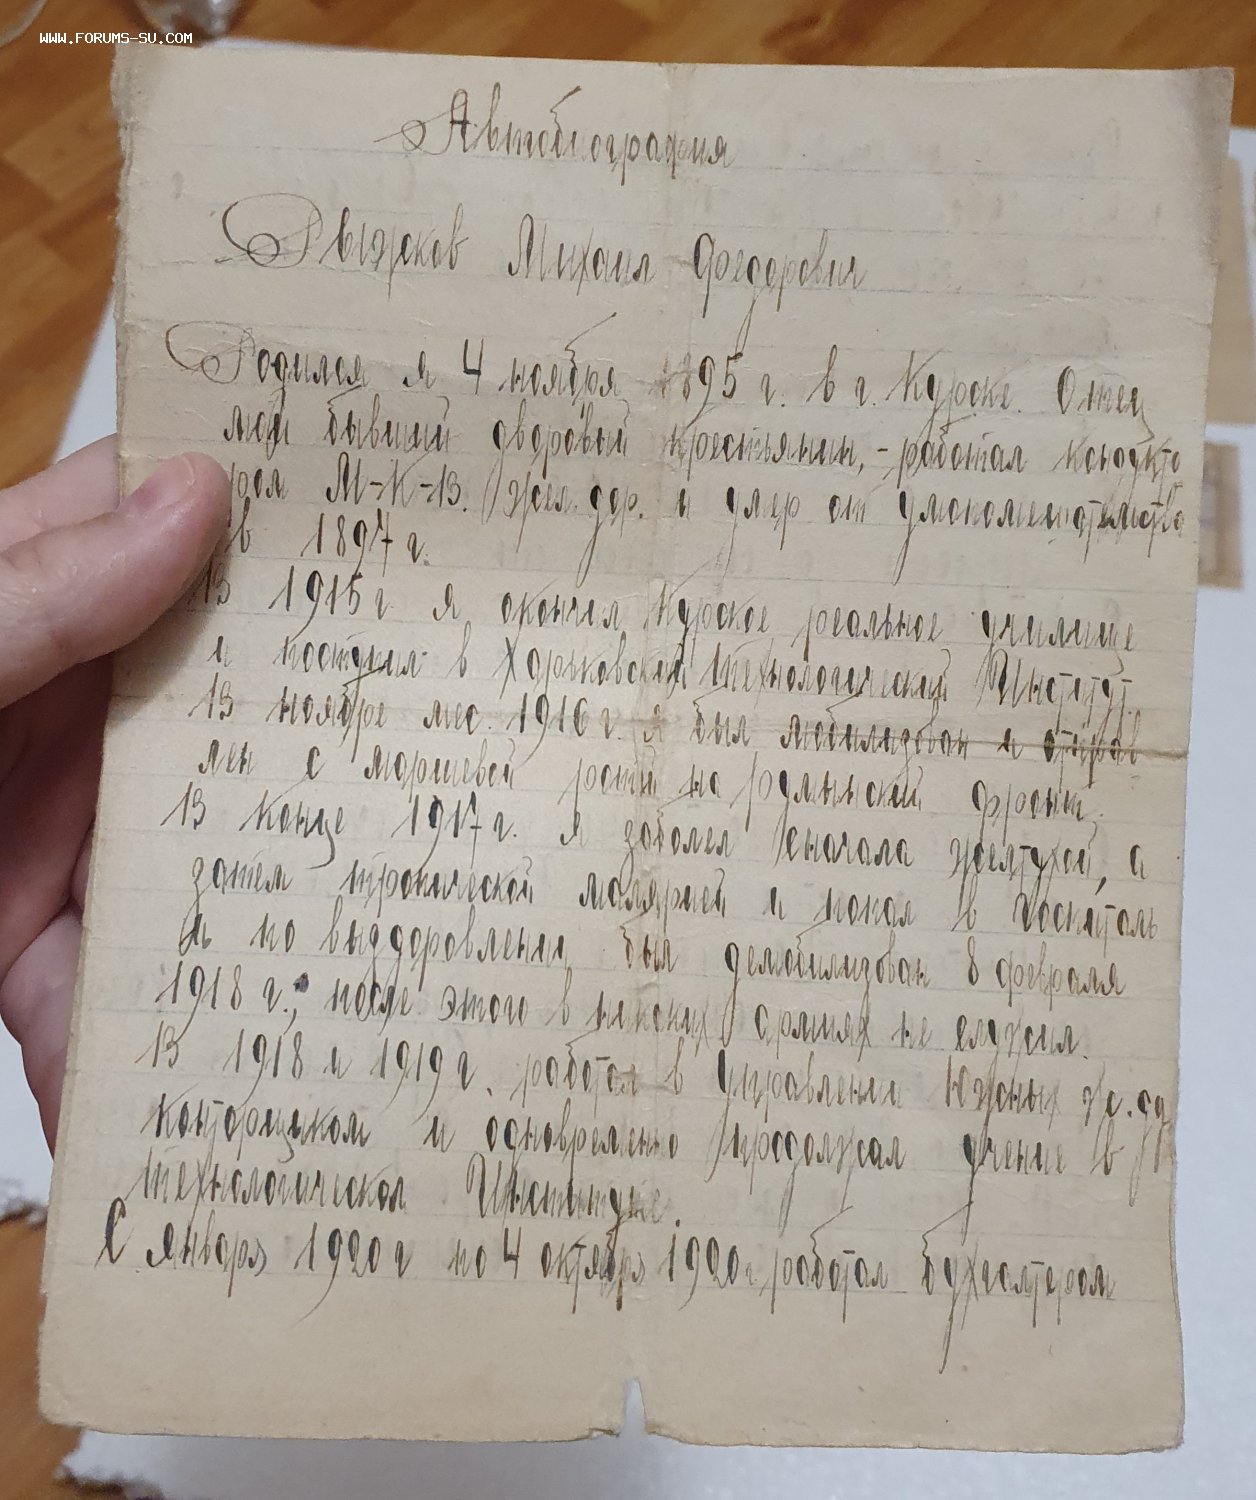 WWW.FORUMS-SU.COM
Автобиография
Рыжков Михаил Федорович
Родился я 4 ноября 1895 г. в г. Курске. Отец
мой бывший дворовый крестьянин, - работал кондукто
ром М-К-В. жел. дор. и умер от умопомешательства
в 1897 г.
В 1915 г. я окончил Курское реальное училище
и поступил в Харьковский Технологический Институт.
В ноябре мес. 1916 г. я был мобилизован и отправ
лен с маршевой ротой на румынский фронт.
В конце 1917 г. я заболел сначала желтухой, а
затем тропической малярией и попал в госпиталь
и по выздоровлении был демобилизован 8 февраля
1918 г.; после этого в никаких армиях не служил.
В 1918 и 1919 г. работал в Управлении Южных ж.д.
конторщиком и одновременно продолжал учение в
Технологическом Институте.
С января 1920 г по 4 октября 1920 г. работал бухгалтером